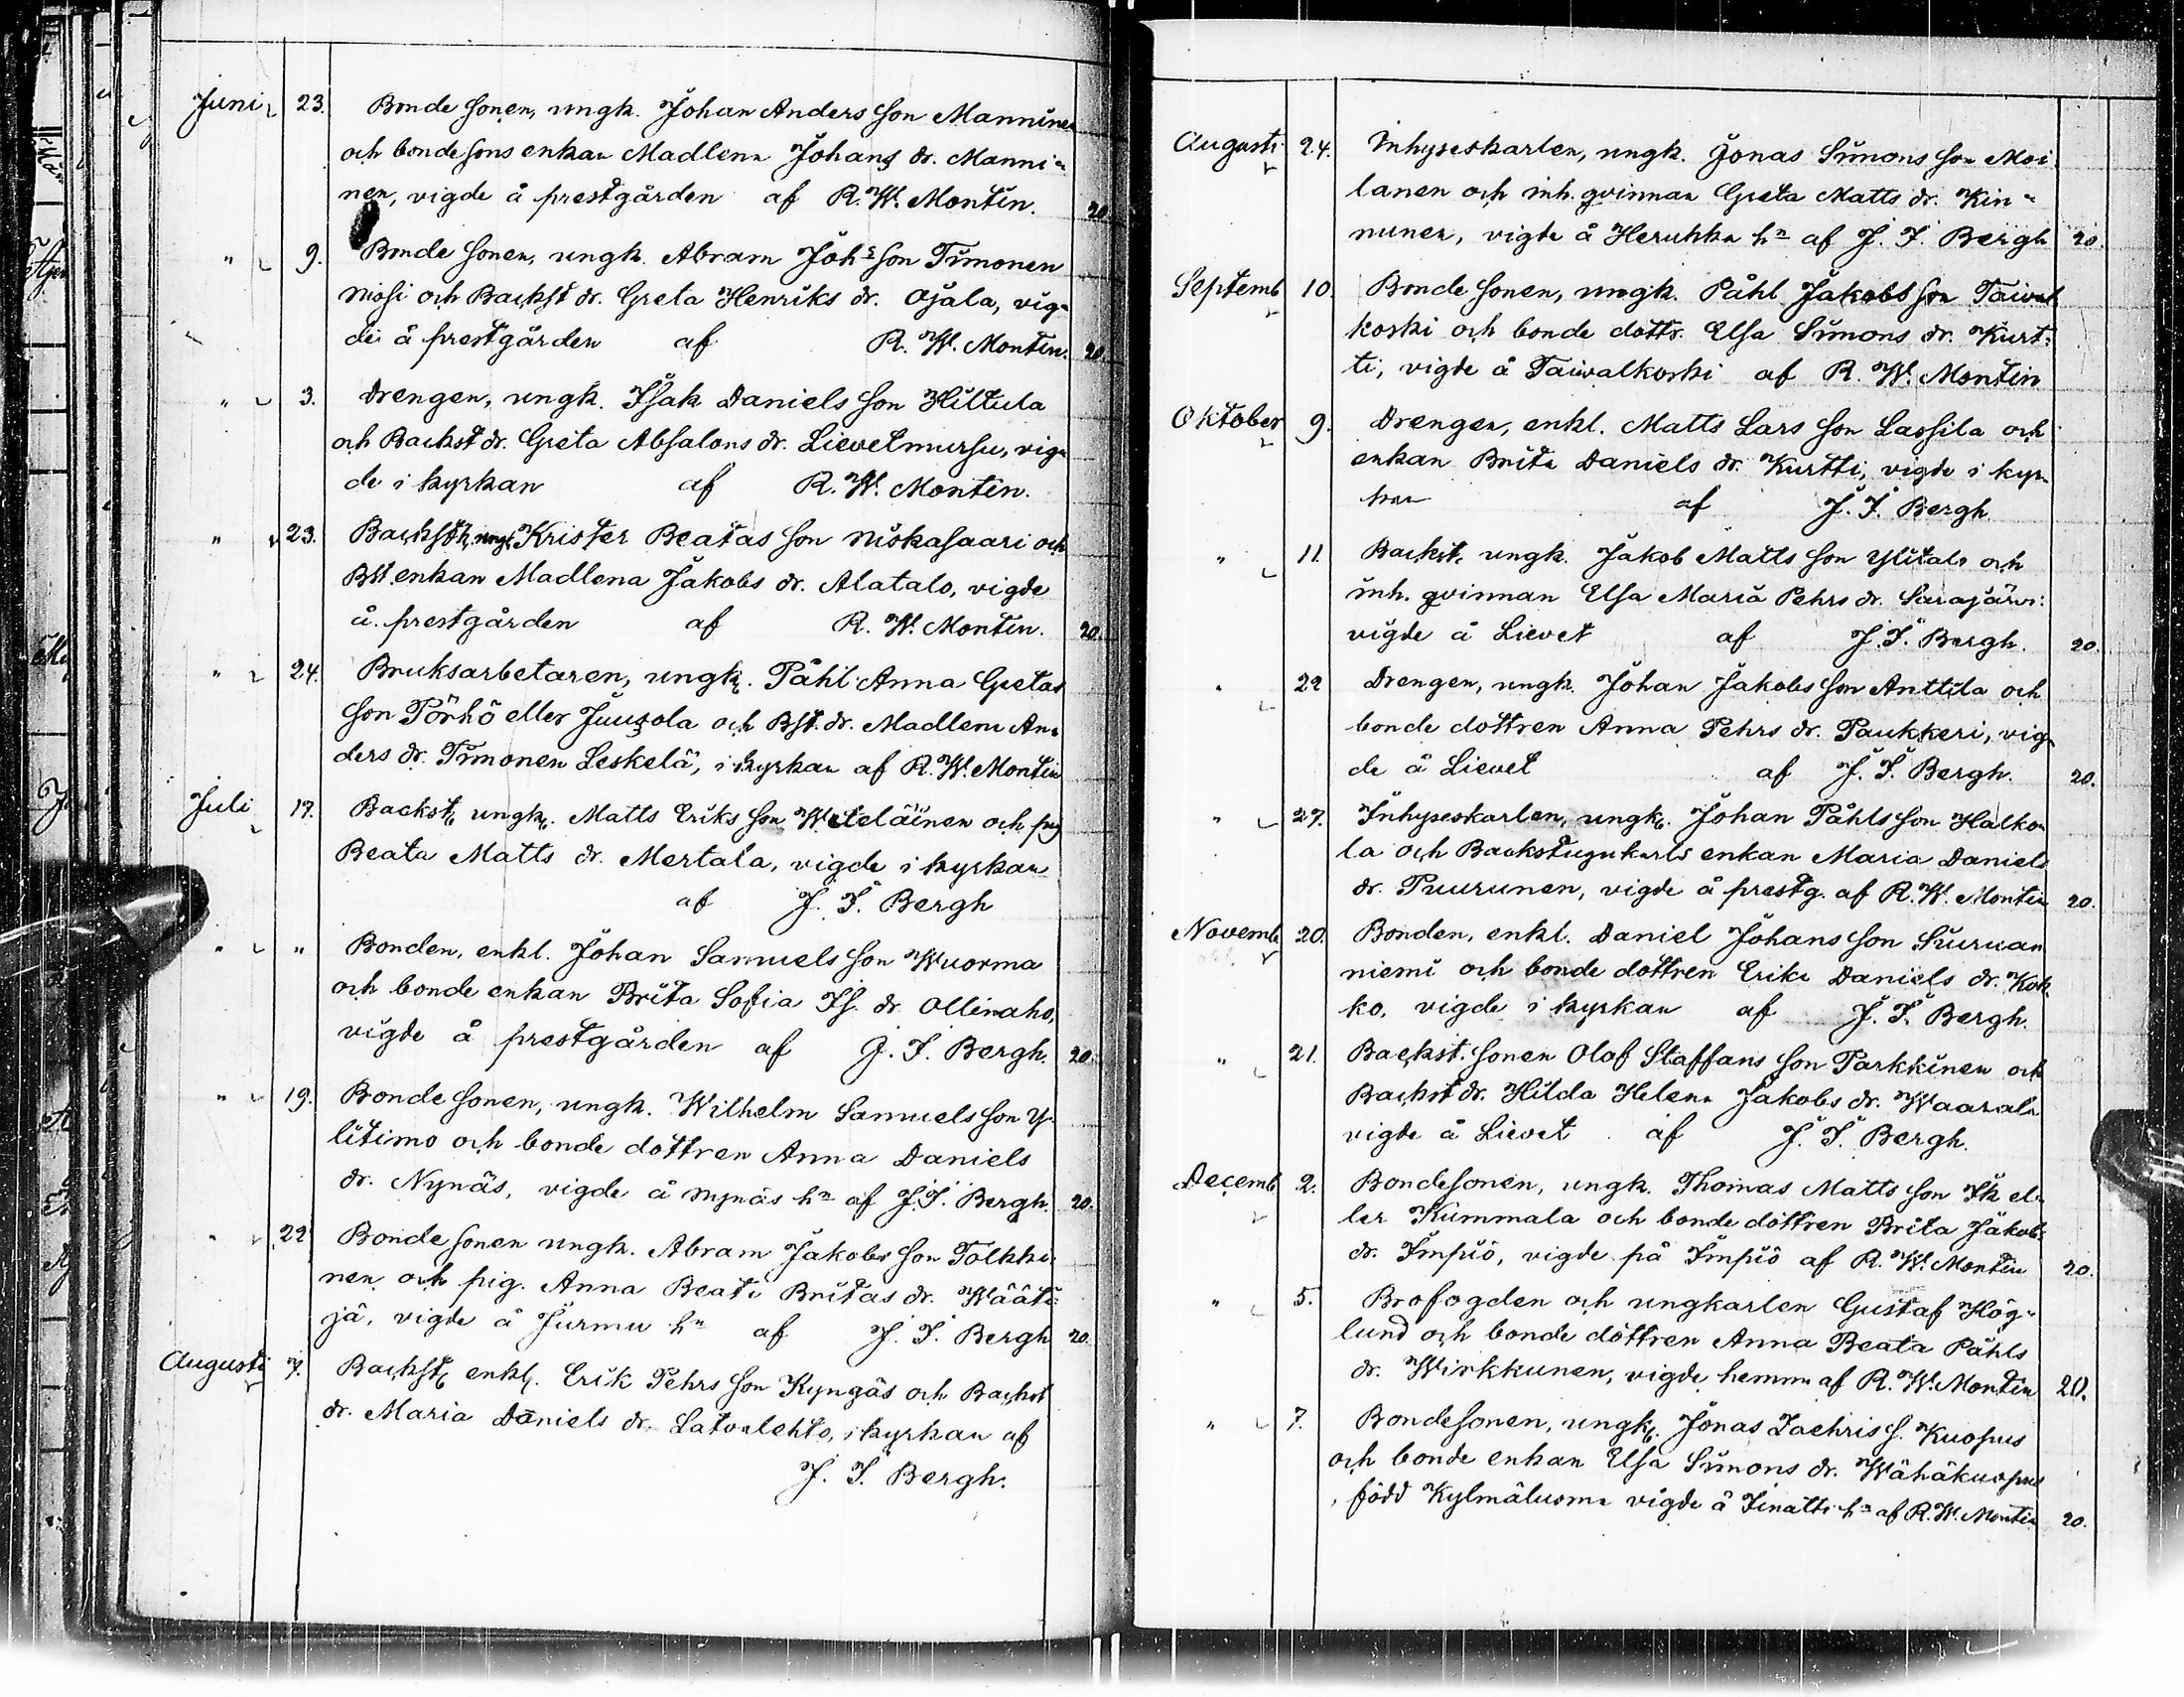 Juni 23. Bonde sonen, ungk. Johan Anders son Manninen
och bondesons enkan Madlena Johans dr. Manni-
nen, vigde å prestgården af R. W. Montin. 20
" 9. Bonde sonen, ungk. Abram Johs son Timonen
Niosi och Backst dr. Greta Henriks dr. Ojala, vig-
de å prestgården af R. W. Montin. 20.
" 3. Drengen, ungk. Isak Daniels son Hiltula
och Backst dr. Greta Absalons dr. Lievetmursu, vig-
de i kyrkan af R. W. Montin.
" 23. Backsth, ungk Krister Beatas son Niskasaari och
Bst enkan Madlena Jakobs dr. Alatalo, vigde
å prestgården af R. W. Montin. 20.
" 24. Bruksarbetaren, ungk. Påhl Anna Gretas
son Törhö eller Juusola och Bst. dr. Madlena An-
ders dr. Timonen Leskelä, i kyrkan af R. W. Montin
Juli 17. Backst, ungk. Matts Eriks son Weteläinen och pig
Beata Matts dr. Mertala, vigde i kyrkan
af J. F. Bergh
" " Bonden, enkl. Johan Samuels son Wuorma
och bonde enkan Brita Sofia Is. dr Ollinaho,
vigde å prestgården af J. F. Bergh. 20.
" 19. Bonde sonen, ungk. Wilhelm Samuels son Y-
litimo och bonde dottren Anna Daniels
dr. Nynäs, vigde å Nynäs hn af J. F. Bergh. 20.
" 22 Bonde sonen ungk. Abram Jakobs son Tolkki-
nen och pig. Anna Beata Britas dr. Wäätä-
jä, vigde å Jurmu hn af J. F. Bergh 20.
Augusti 7. Backst, enkl. Erik Pehrs son Kyngäs och Backst
dr. Maria Daniels dr. Latvalehto, i kyrkan af
J. F. Bergh.
Augusti 24. Inhyseskarlen, ungk. Jonas Simons son Moi
lanen och inh. qvinnan Greta Matts dr. Kin-
nunen, vigde å Heruhka hn af J. F. Bergh 20.
Septemb 10. Bonde sonen, ungk. Påhl Jakobs son Taival
koski och bonde dottr. Elsa Simons dr. Kurt-
ti, vigde å Taivalkoski af R. W. Montin
Oktober 9. Drengen, enkl. Matts Lars son Lassila och
enkan Brita Daniels dr. Kurtti, vigde i kyr-
kan af J. F. Bergh.
" 11. Backst. ungk. Jakob Matts son Ylitalo och
inh. qvinnan Elsa Maria Pehrs dr. Sarajärvi:
vigde å Lievet af J. F. Bergh. 20.
" 22 Drengen, ungk. Johan Jakobs son Anttila och
bonde dottren Anna Pehrs dr. Paukkeri, vig-
de å Lievet af J. F. Bergh. 20.
" 27. Inhyseskarlen, ungk. Johan Påhls son Halko-
la och Backstugukarls enkan Maria Daniels
dr. Puurunen, vigde å prestg. af R. W. Montin 20.
Novemb 20. Bonden, enkl. Daniel Johans son Siuruan
niemi och bonde dottren Erika Daniels dr. Kok-
ko, vigde i kyrkan af J. F. Bergh.
" 21. Backst. sonen Olof Staffans son Parkkinen och
Backst dr. Hilda Helena Jakobs dr. Waarala
vigde å Lievet af J. F. Bergh.
Decemb 2. Bondesonen, ungk. Thomas Matts son Ik el-
ler Kummala och bonde döttren Brita Jakobs
dr. Impiö, vigde på Impiö af R. W. Montin 20.
" 5. Brofogden och ungkarlen Gustaf Hög-
lund och bonde döttren Anna Beata Påhls
dr. Wirkkunen, vigde hemma af R. W. Montin 20.
" 7. Bondesonen, ungk. Jonas Zachris s. Kuopus
och bonde enkan Elsa Simons dr. Wähäkuopus
, född Kylmäluoma vigde å Jinatti hn af R. W. Montin 20.